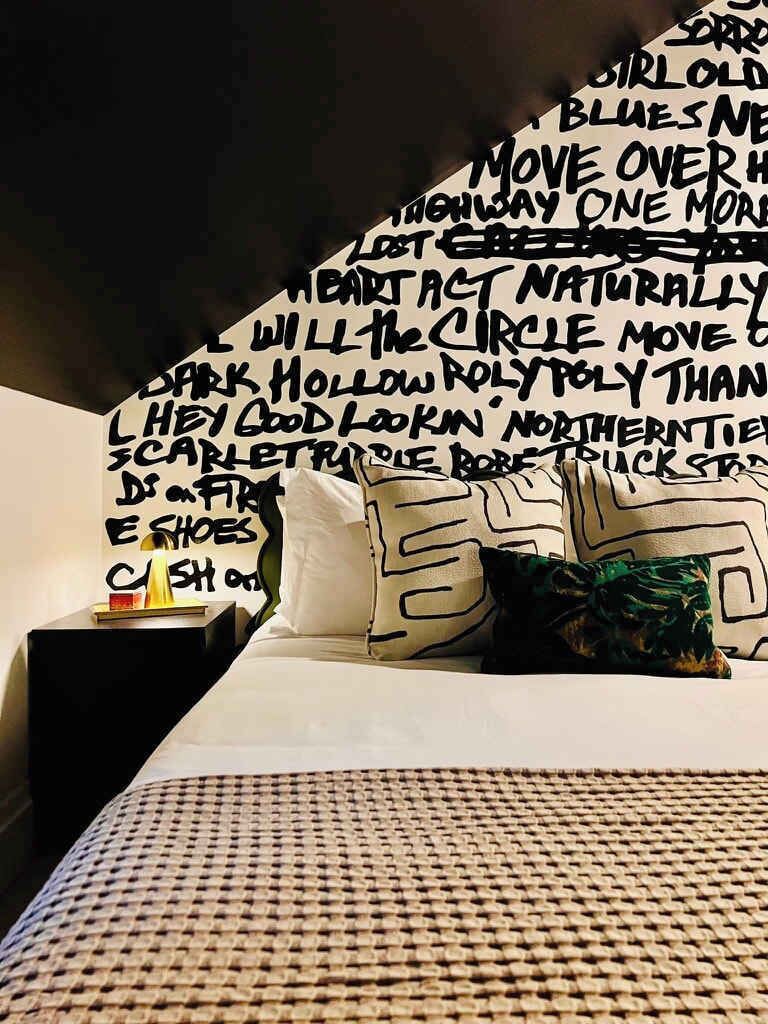 SORRO
GIRL OLD
BLUES NE
MOVE OVER H
HIGHWAY ONE MORE
LOST
HEART ACT NATURALLY
L WILL the CIRCLE MOVE O
DARK HOLLOW ROLY POLY THAN
L HEY GOOD LOOKIN' NORTHERN TIE
SCARLET PURPLE ROBE TRUCK STO
DS on FIR
E SHOES
CASH on